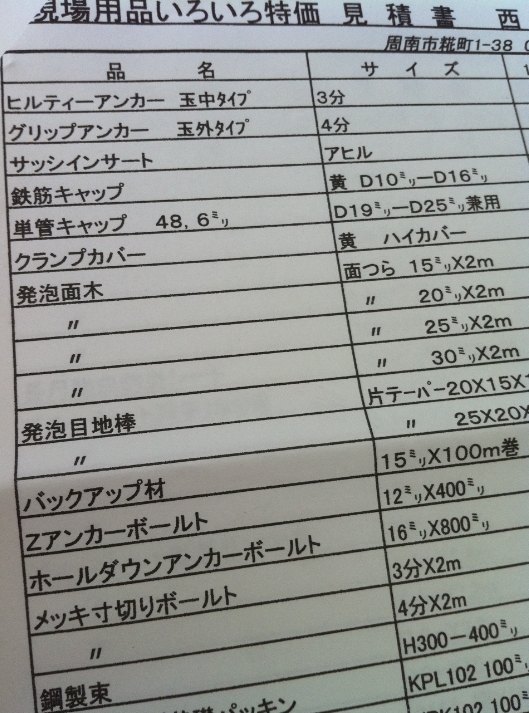 現場用品いろいろ特価 見積書 西
周南市糀町1-38
品名 サイズ
ヒルティーアンカー 玉中タイプ 3分
グリップアンカー 玉外タイプ 4分
サッシインサート アヒル
鉄筋キャップ 黄 D10㍉ーD16㍉
単管キャップ 48,6㍉ D19㍉ーD25㍉兼用
クランプカバー 黄 ハイカバー
発泡面木 面つら 15㍉X2m
〃 〃 20㍉X2m
〃 〃 25㍉X2m
〃 〃 30㍉X2m
発泡目地棒 片テーパー20X15X1
〃 〃 25X20X
バックアップ材 15㍉X100m巻
Zアンカーボールト 12㍉X400㍉
ホールダウンアンカーボールト 16㍉X800㍉
メッキ寸切りボールト 3分X2m
〃 4分X2m
鋼製束 H300ー400㍉
パッキン KPL102 100㍉